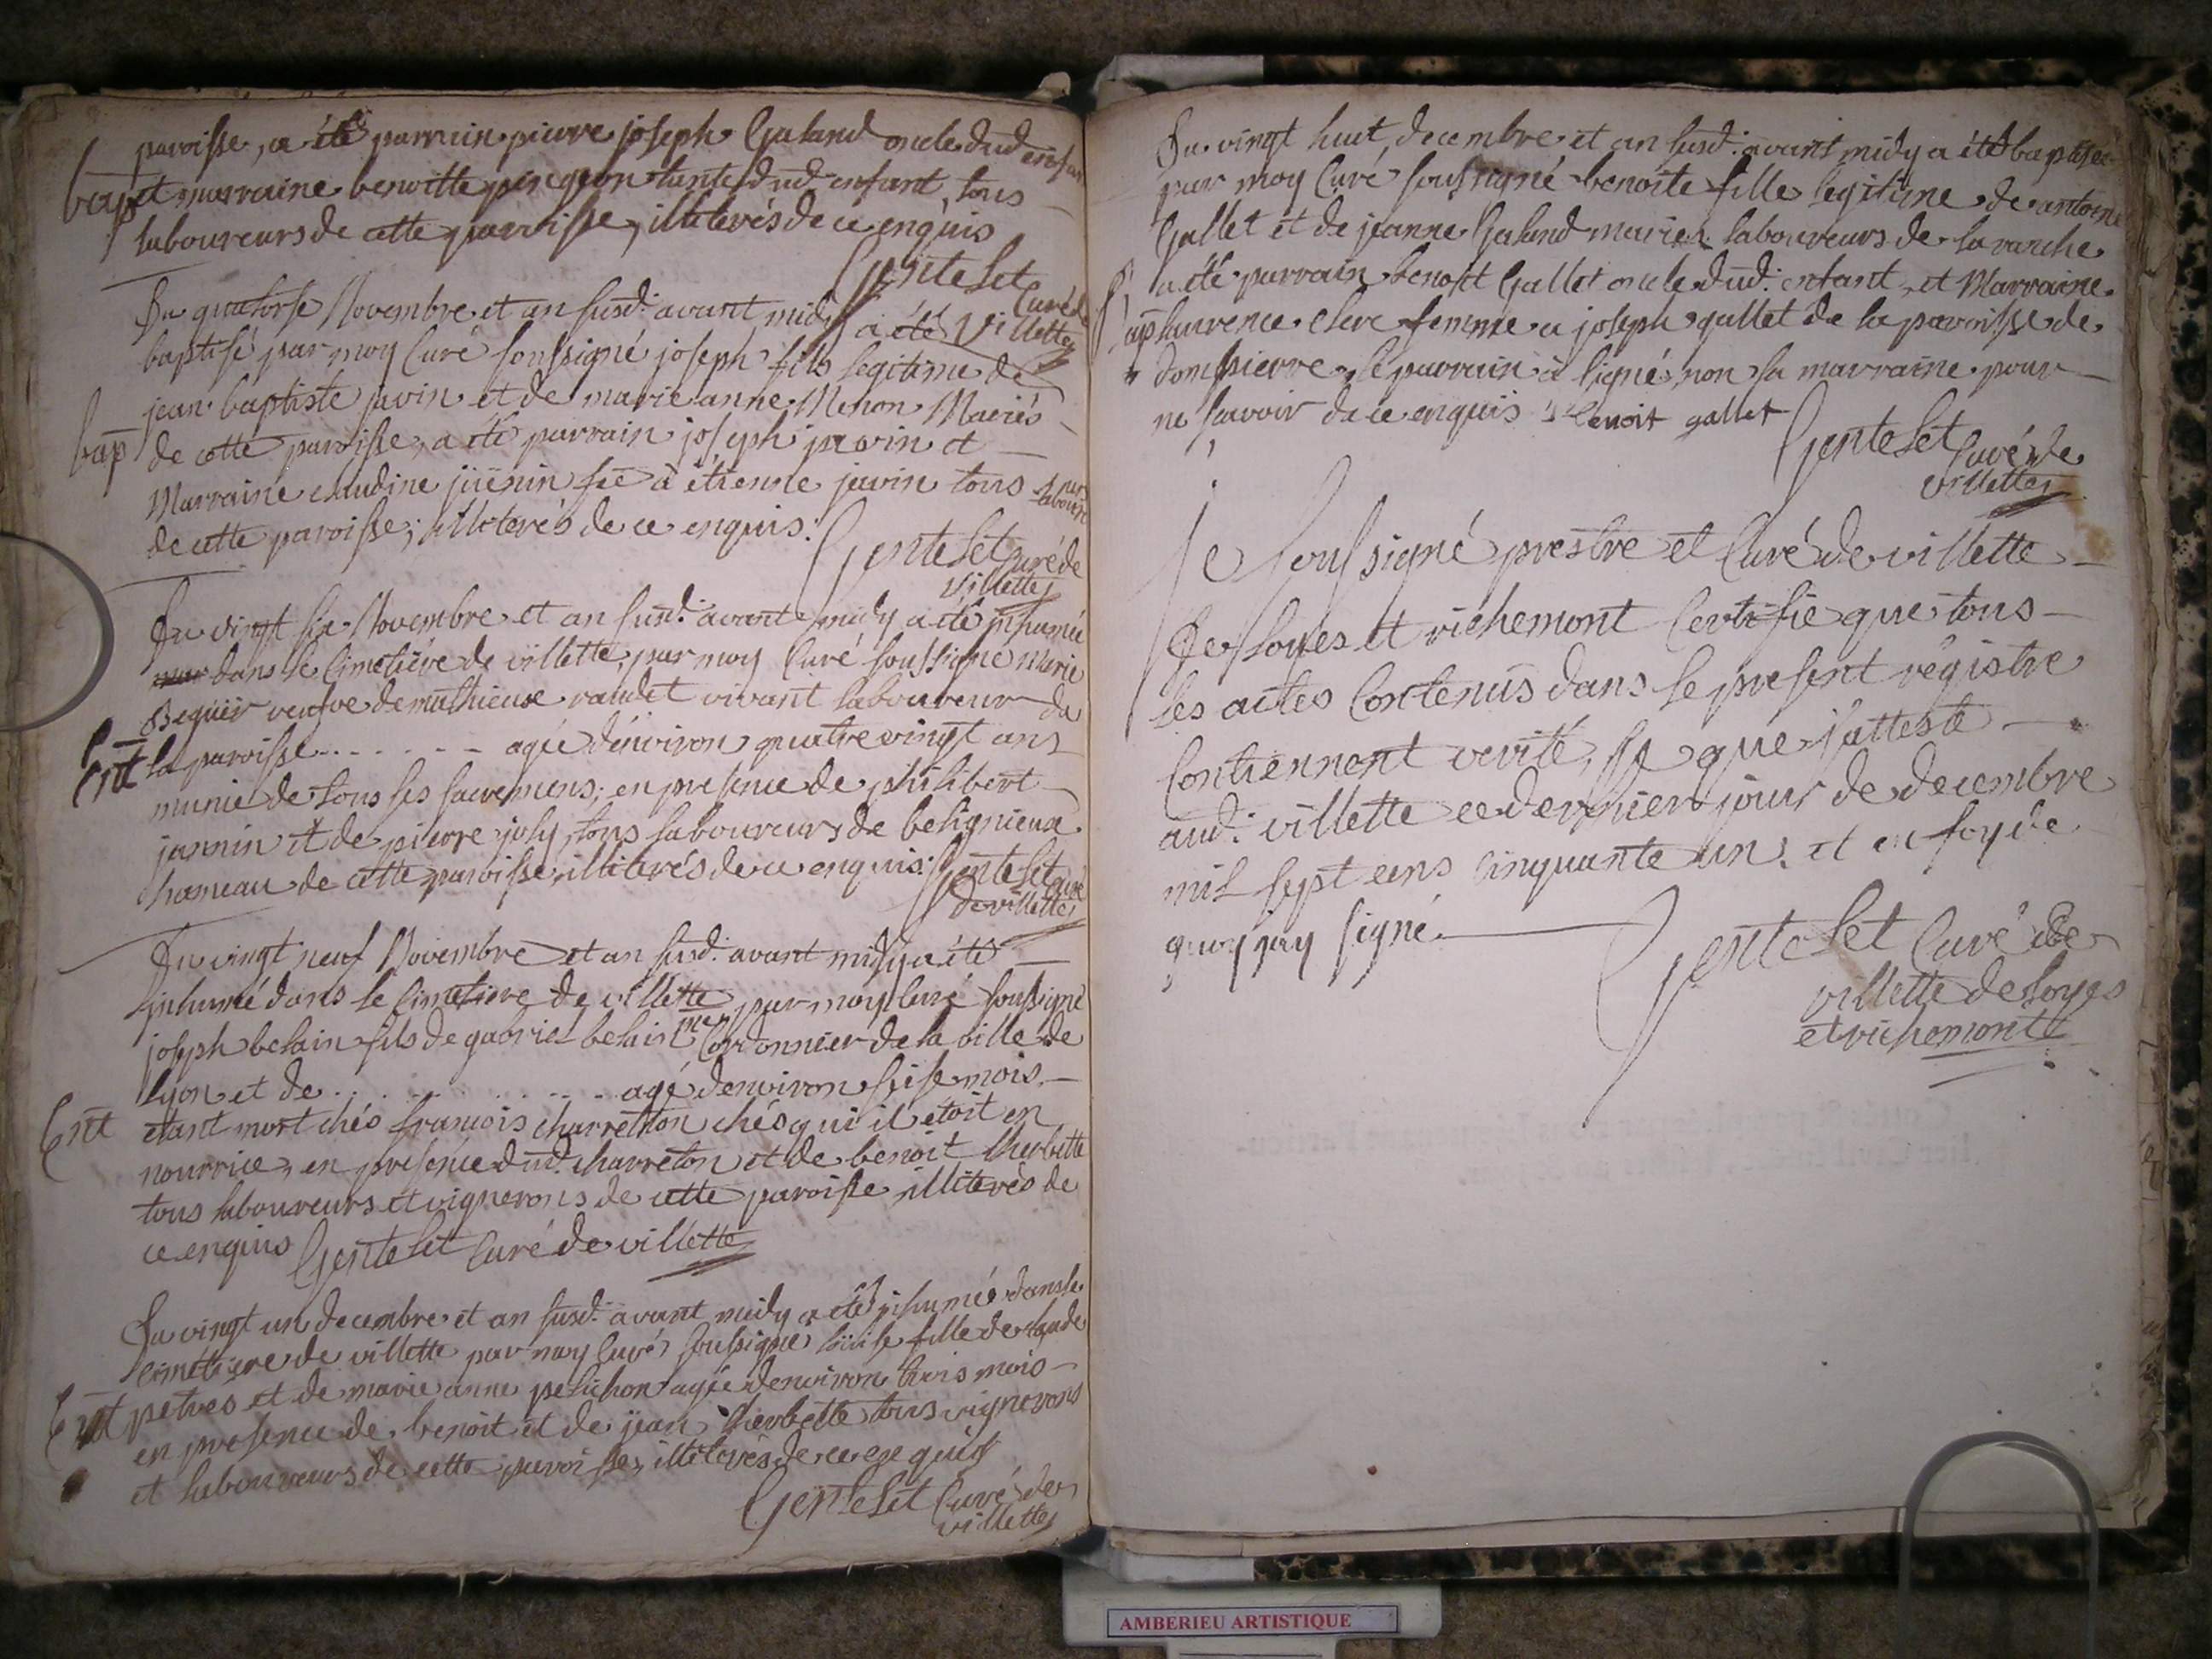 paroisse, a été parrain pierre joseph Galand oncle dud enfan
bap et marraine benoitte pingeon tante dud enfant, tous
laboureurs de cette parroisse, illiterés de ce enquis
Gentelet Curé de Villette
Du quatorse Novembre et an susd: avant midy a été
baptisé par moy Curé soussigné joseph fils legitime de
jean baptiste javin et de marie anne Menon Mariés
bap de cette paroisse, a été parrain joseph javin et
Marraine claudine jüenin fe à étienne javin tous laboureurs
de cette paroisse, illiterés de ce enquis.
Gentelet curé de
villette
Du vingt six Novembre et an susd: avant midy a été inhumée
dans le Cimetiére de villette, par moy Curé soussigné Marie
Beguir veufve de mathieux randet vivant laboureur de
Ent la paroisse - - - - - - agée dénviron quatre vingt ans
munie de tous ses sacremens; en presence de philibert
jannin et de pierre joly, tous laboureurs de belignieux
hameau de cette paroisse, illiterés de ce enquis: Gentelet curé
de villette
Du vingt neuf Novembre et an susd: avant midy a été
inhumé dans le Cimetiere de villette, par moy Curé soussigné
joseph belain fils de gabriel belain me Cordonnier de la ville de
lyon et de . . . . . . . . . . agé d'environ seise mois
Ent etant mort chés francois charreton chés qui il étoit en
nourrice, en presence dud. charreton et de benoit lherbette
tous laboureurs et vignerons de cette paroisse illiterés de
ce enquis Gentelet Curé de villette
Du vingt un decembre et an susd: avant midy a été inhumée dans le
cimétiere de villette par moy Curé soussigné loüise fille de claude
Ent petres et de marie anne pelichon agée denviron trois mois
en presence de benoit et de jean lherbette tous vignerons
et laboureurs de cette paroisse, illiterés de ce enquis
Gentelet Curé de
villette
Du vingt huit decembre et an susd: avant midy a été baptisée
par moy Curé soussigné benoite fille legitime de antoine
Gallet et de jeanne Galand mariés laboureurs de la ranche
a été parrain benoit Gallet oncle dud: enfant, et Marraine
bap laurence clerc femme a joseph gallet de la paroisse de
dompierre, le parrain à signé, non la marraine pour
ne savoir de ce enquis Benoit gallet
Gentelet Curé de
villette
Je soussigné prestre et Curé de villette
de loyes et richemont Certifie que tous
les actes Contenus dans le present régistre
Contiennent verité, ce que j'atteste
aud: villette ce dernier jour de decembre
mil sept cens Cinquante un. et en foy de
quoy jay signé.
Gentelet Curé de
villette de loyes
et richemont
AMBERIEU ARTISTIQUE